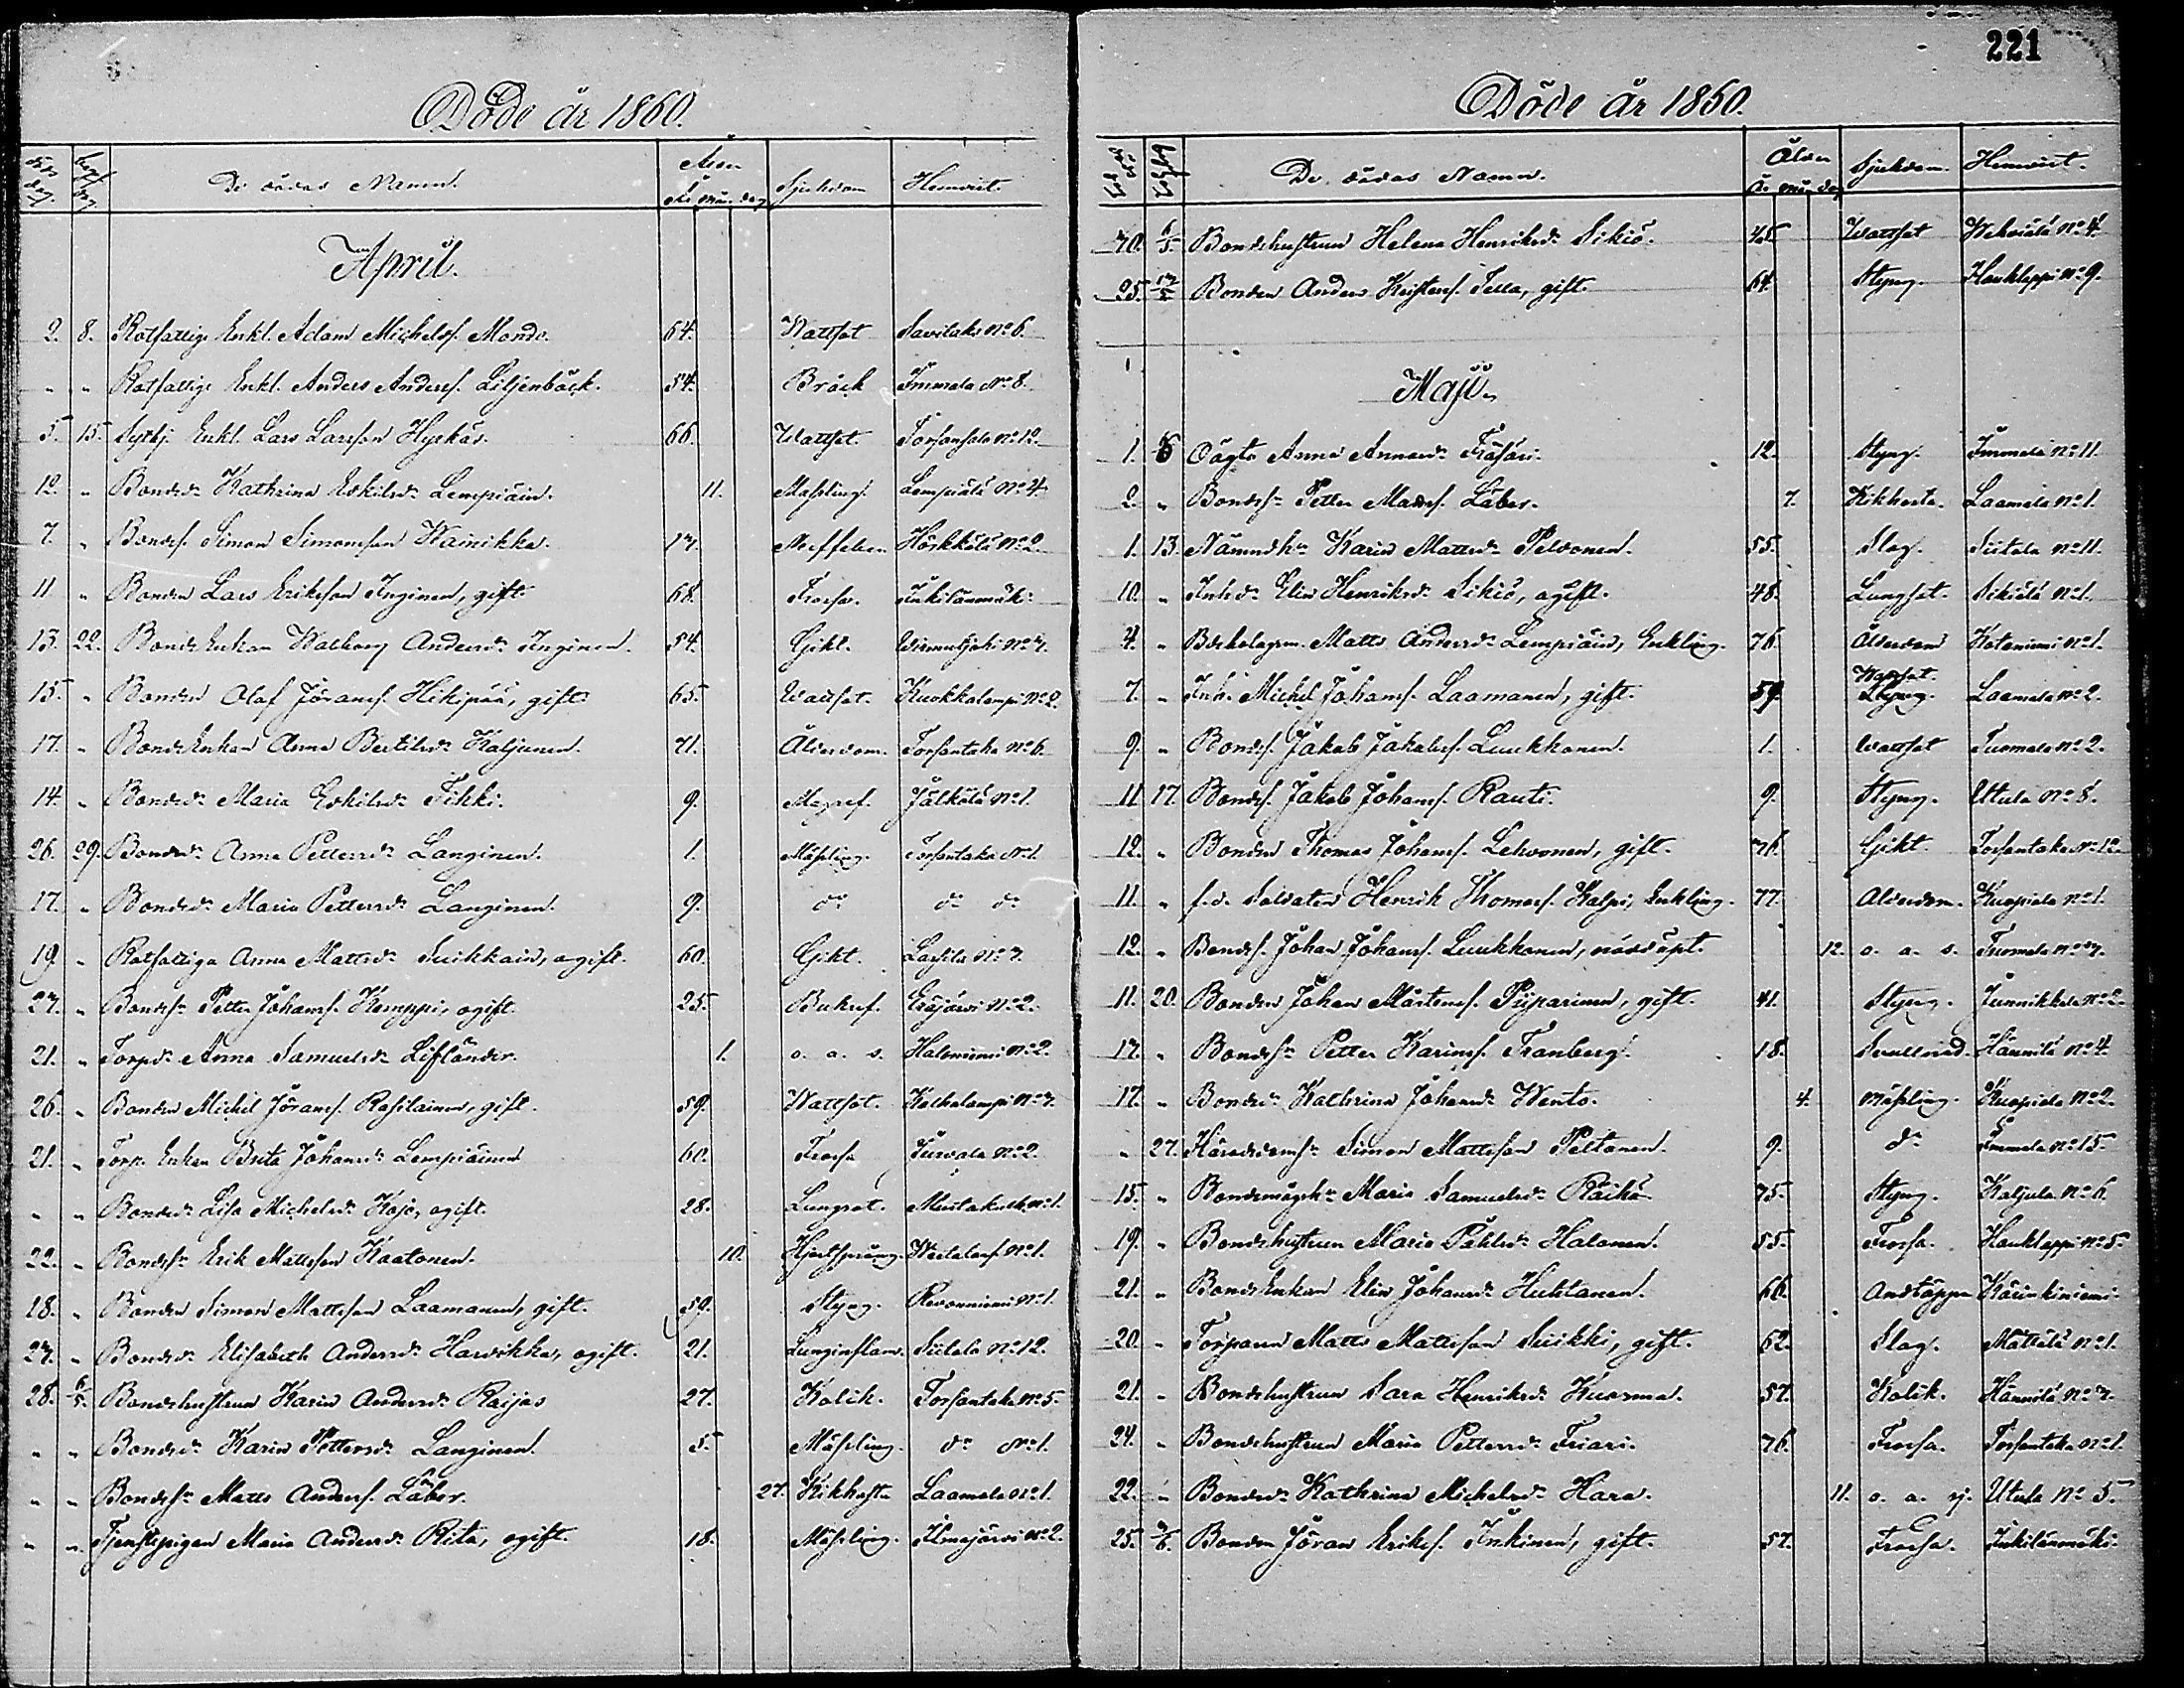 Döde år 1860.
De dödas Namn. År mån. dag Sjukdom Hemvist.
April.
2. 8. Rotfattige Enkl. Adam Michelss. Mondo. 64. Wattsot Savilaks No 6.
" " Rotfattige Enkl. Anders Anderss. Liljenbäck. 54. Bråck Immala No 8.
5. 15. Enkl. Lars Larsson Hyrkäs. 66. Wattsot. Torsansalo No 12.
12. " Bonded:r Kathrina Eskilsd:r Lempiäin. 11. Mässling. Lempiälä No 4.
7. " Bondes. Simon Simonsson Wainikka. 17. Höskkälä No 2.
11 " Bonden Lars Eriksson Inginen, gift. 68. Frossa. Inkilänmäki.
13. 22. Bonde Enkan Walborg Andersd:r Inginen. 54. Gikt. No 7.
15. " Bonden Olof Jöranss. Hikipää, gift. 65. Wattsot. Kuokkalampi No 2.
17. " Bonde Enkan Anna Bertilsd:r Kaljunen. 71. Ålderdom. Torsantaka No 6.
14. " Bonded:r Maria Eskilsd:r Tikki. 9. Magref. Jälkölä No 1.
26. 29. Bonded:r Anna Pettersd:r Langinen. 1. Mässling. Torsantaka No 1.
17. " Bonded:r Maria Pettersd:r Langinen. 9. d:o d:o d:o
19 " Rotfattiga Anna Mattsd:r Suikkain, ogift. 60. Gikt. Lassila No 7.
27. " Bondes:n Petter Johanss. Kemppi, ogift. 25. Bukref. Eräjärvi No 2.
21. " Torpd:r Anna Samuelsd:r Lifländer. 1. o. a. s. Haloniemi No 2.
26. " Bonden Michel Jöranss. Rasilainen, gift. 59. Wattsot. Kalkalampi No 7.
21. " Torp. Enkan Brita Johansd:r Lempiäinen 60. Frossa Jurvala No 2.
" " Bonded:r Lisa Michelsd:r Kojo, ogift. 28. Lungsot. No 1.
22. " Bondes:n Erik Mattsson Kaatonen. 10. Hjertsprång. No 1.
18. " Bonden Simon Mattsson Laamanen, gift. 59. Styng. No 1.
27. " Bonded:r Elisabeth Andersd:r Harvikka, ogift. 21. Lunginflam. Siitola No 12.
28. 6/5. Bondehustrun Karin Andersd:r Raijas 27. Kolik. Torsantaka No 5.
" " Bonded:r Karin Pettersd:r Langinen. 5. Mässling. d:o No 1.
" " Bondes:n Matts Anderss. Läber. 27. Kikhosta Laamala No 1.
" " Tjenstepigan Maria Andersd:r Rita, ogift. 18. Mässling. Ilmejärvi No 2.
221
Döde år 1860.
De dödas Namn. Ålder År mån. dag Sjukdom. Hemvist.
20. 6/5. Bondehustrun Helena Henriksd:r Sikiö. 45. Wattsot No 4.
25. 13/5 Bonden Anders Kristerss. Tella, gift. 64. Styng. Haukleppi No 9.
Maji.
1. 6 Oägta Anna Annasd:r Fräsäri. 12. Styng. Immala No 11.
2. " Bondes:n Petter Matss. Läber. 7. Kikhosta. Laamala No 1.
1. 13. Nämndh:r Karin Mattsd:r Peltonen. 55. Slag. Siitola No 11.
10. " Inh. d:r Elin Henriksd:r Sikiö, ogift. 48. Lungsot. Sikiälä No 1.
4. " Matts Lempiäin, Enkling. 76. Ålderdom No 1.
7. " Inh. Michel Johanss. Laamanen, gift. 59. Wattsot. Laamala No 2.
9. " Bondes. Jakob Jakobss. Luukkonen. 1. Wattsot Tuomala No 2.
11 17. Bondes. Jakob Johanss. Rauti. 9. Styng. Utula No 8.
12. " Bonden Thomas Johanss. Lehvonen, gift. 76. Gikt. Torsantaka No 12.
11. " f.d. Soldaten Henrik Thomass. Kalpi, Enkling. 77. Ålderdom. Kuopiala No 1.
12. " Bondes. Johan Johanss. Luukkonen, nöddöpt. 12. o. a. s. Tuomala No 7.
11. 20. Bonden Johan Mårtenss. Piiparinen, gift. 41. Styng. Junnikkala No 2.
17. " Bondes:n Petter Karinss. Tranberg. 18. Hännilä No 4.
17. " Bonded:r Kathrina Johansd:r Wento. 4. Mässling. Kuopiala No 2.
" 27. Simon Mattsson Peltonen. 9. d:o Immala No 15.
15. " Maria Samuelsd:r Räihä 75. Styng. Kaljula No 6.
19. " Bondehustrun Maria Påhlsd:r Halonen. 55. Frossa. Haukleppi No 5.
21. " Bonde Enkan Elin Johansd:r Huhtanen. 66. Andtäppa Kärinkiniemi.
20. " Torparen Matts Mattsson Suikki, gift. 62. Slag. Mättälä No 1.
21. " Bondehustrun Sara Henriksd:r Kuosma. 57. Kolik. Hännilä No 7.
24. " Bondehustrun Maria Pettersd:r Friari. 76. Frossa. Torsantaka No 1.
22. " Bonded:r Kathrina Michelsd:r Hara. 11. o. a. sj. Utula No 5.
25. 3/6. Bonden Jöran Erikss. Inkinen, gift. 57. Frossa. Inkilänmäki.